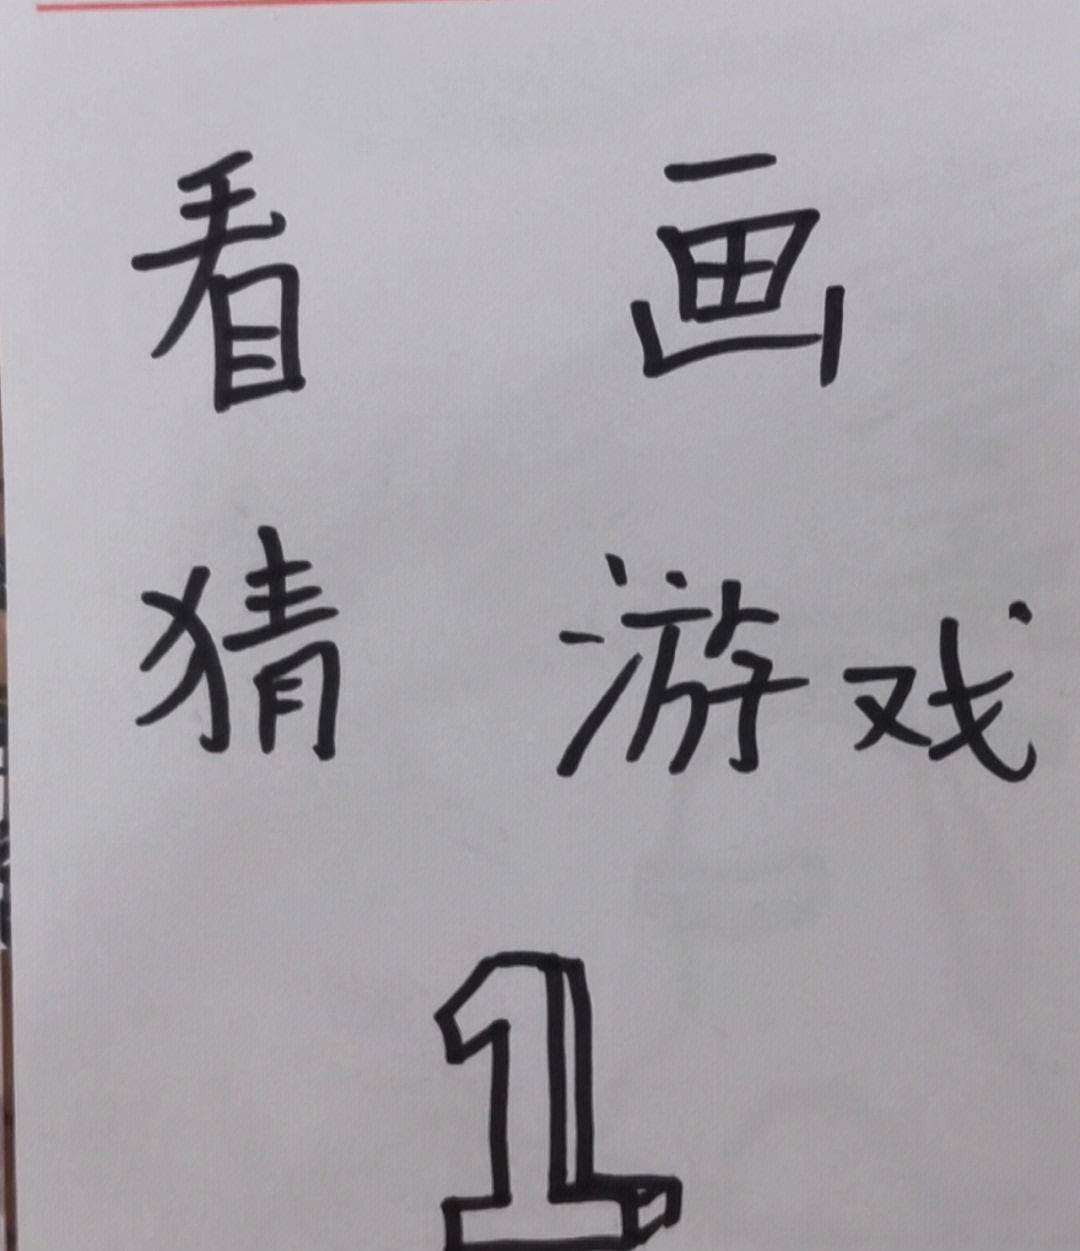 看画
猜游戏
1